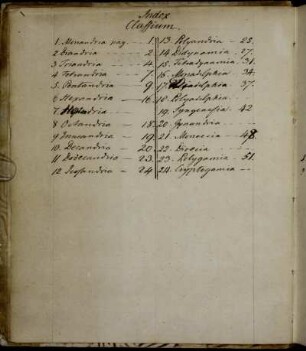 Index
Classium.
1. Monandria pag. — 1.
2 Diandria — 2.
3. Triandria — 4.
4. Tetrandria — 7.
5. Pentandria — 9
6. Hexandria — 16.
7
8 Octandria — 18
9. Enneandria — 19
10. Decandria — 20.
11 Dodecandria — 23.
12. Icosandria — 24
13. Polyandria — 25.
14. Didynamia — 27.
15. Tetradynamia — 31.
16. Monadelphia — 34.
17. Diadelphia — 37.
18. Polyadelphia.
19. Syngenesia — 42
20. Gynandria
21. Monoecia — 48.
22. Dioecia
23. Polygamia — 51.
24. Cryptogamia